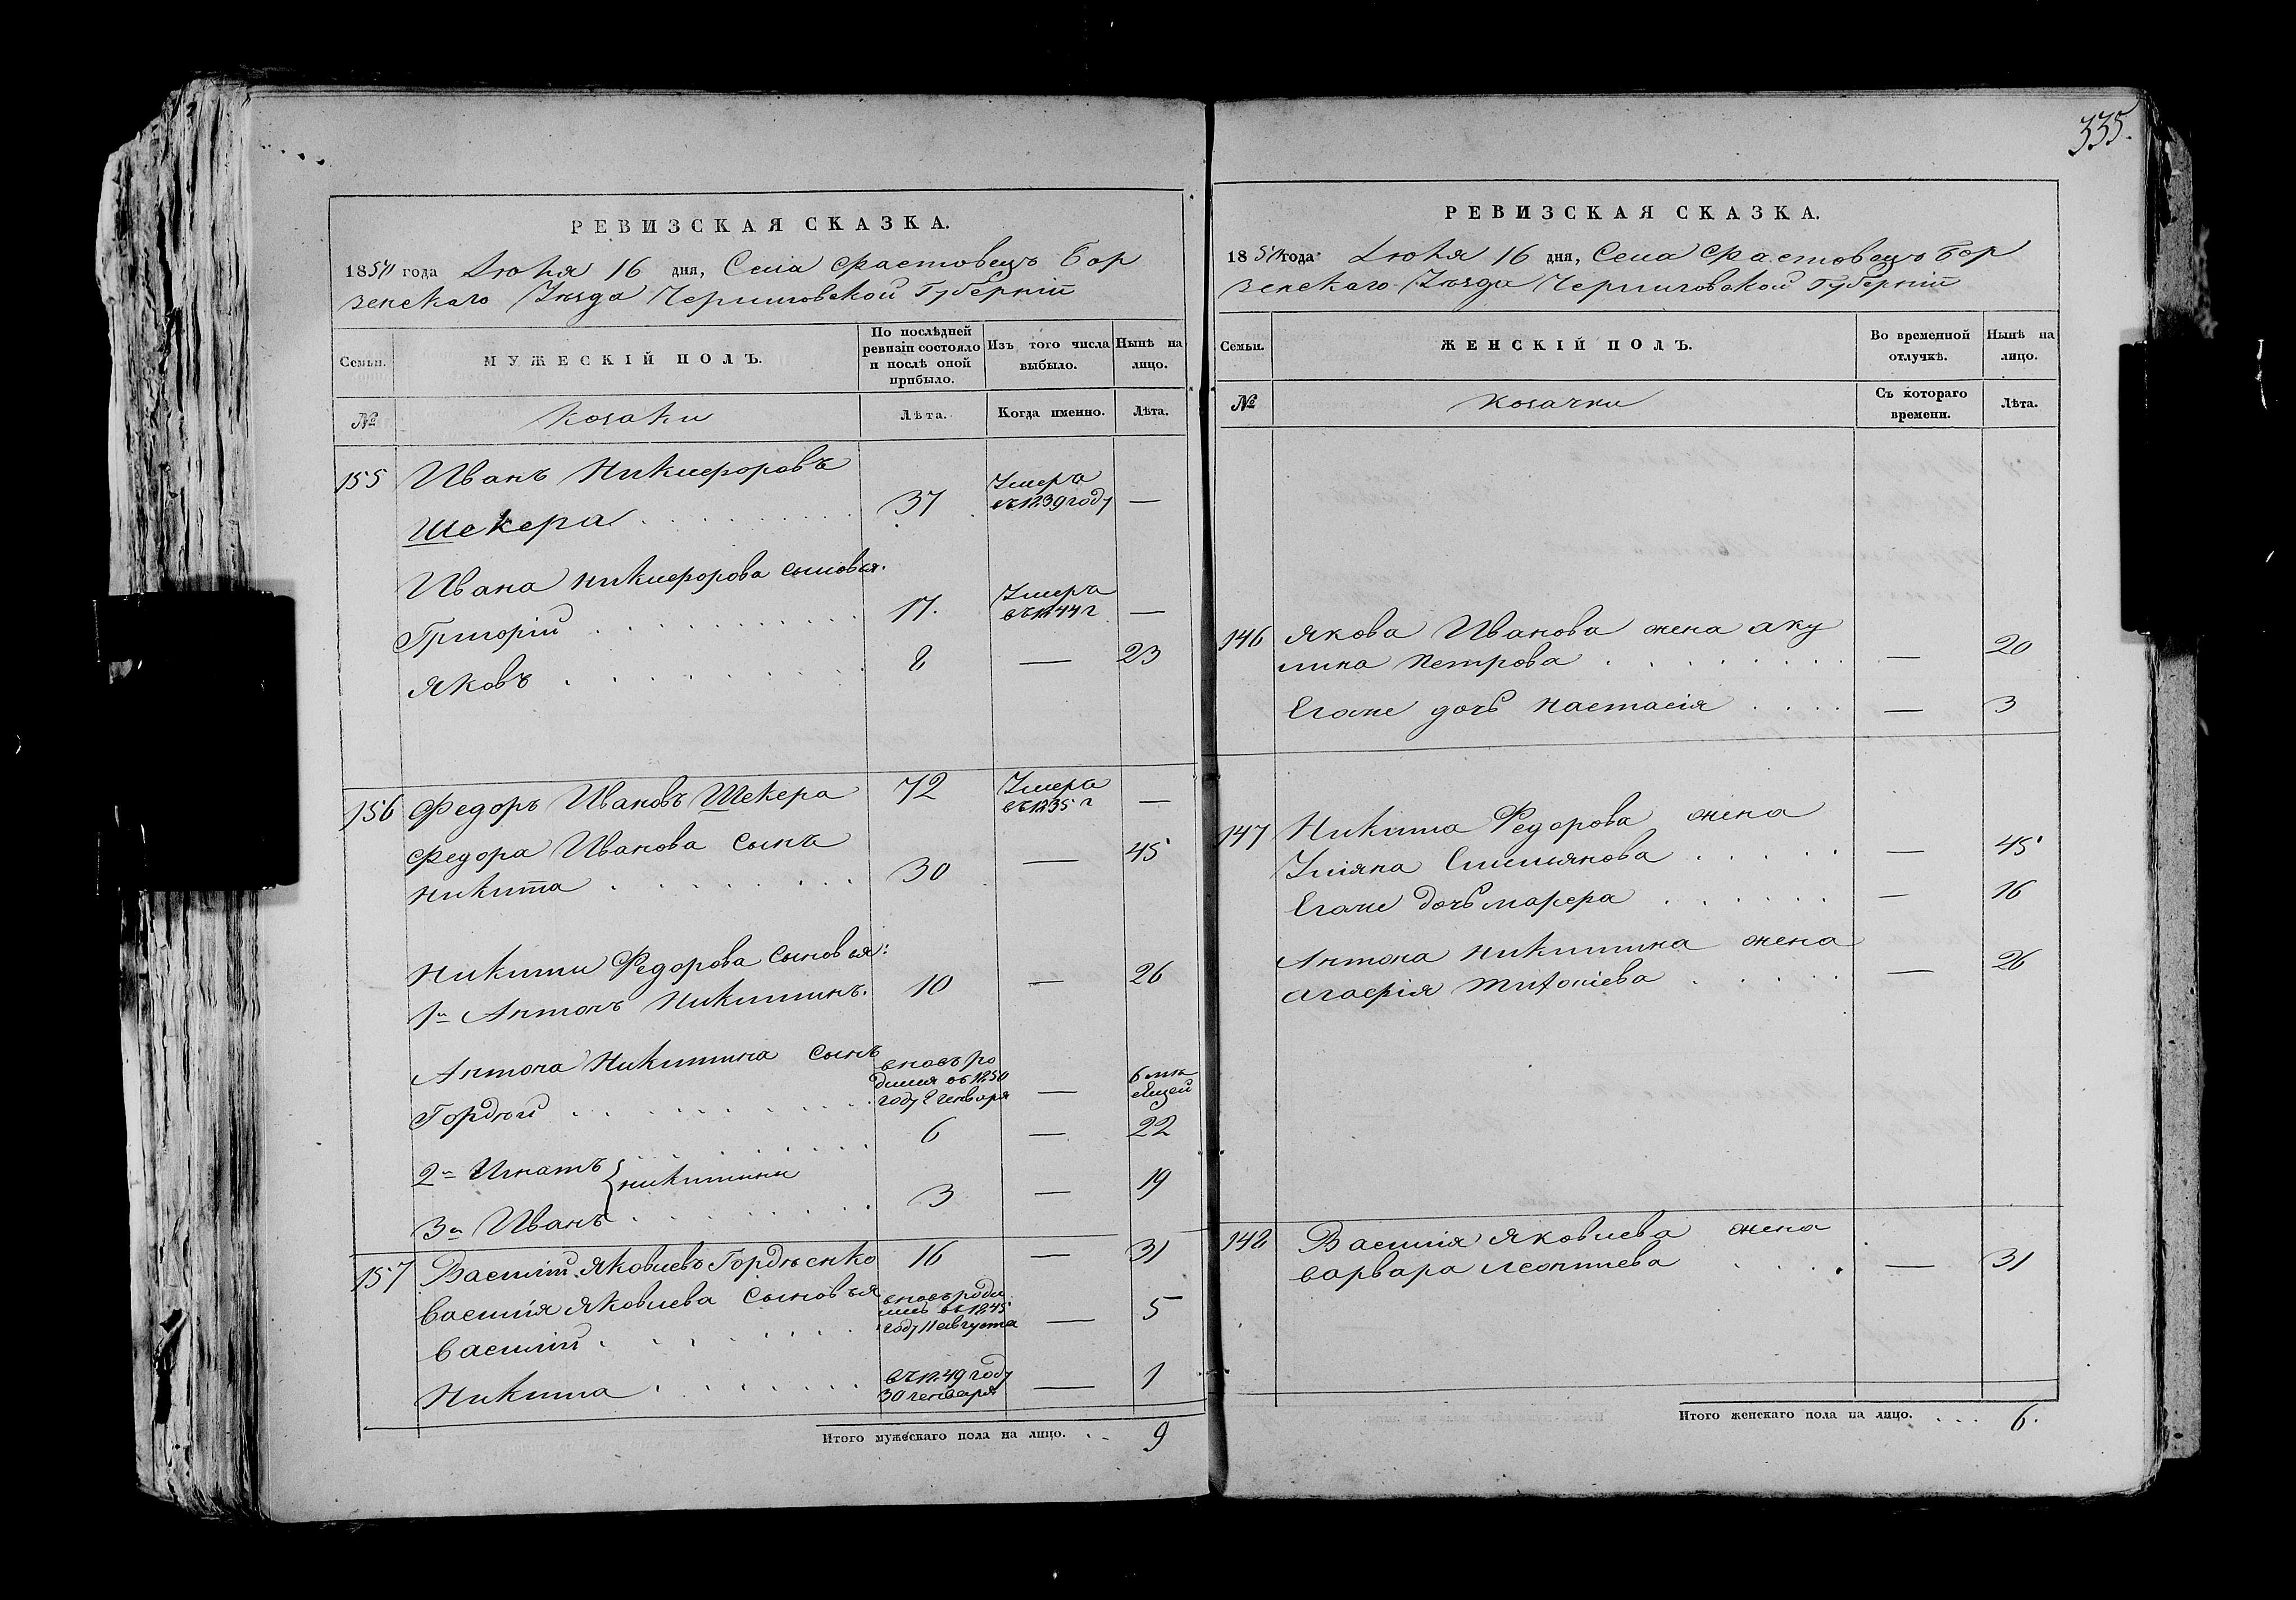 335.
РЕВИЗСКАЯ СКАЗКА.
1850 года Іюня 16 дня, Села Фастовецъ Бор
зенскаго Уѣзда Черниговской Губерніи
Семьи.
МУЖЕСКІЙ ПОЛЪ.
По послѣдней ревизіи состояло и послѣ оной прибыло.
Изъ того числа выбыло.
Нынѣ на лицо.
№
Козаки
Лѣта.
Когда именно.
Лѣта.
155 Иванъ Никифоровъ
Шекера 37 Умеръ въ 1839 году —
Ивана Никифорова сыновья:
Григорій 17. Умеръ въ 1844 г —
Яковъ 8 — 23
156 Федоръ Ивановъ Шекера 72 Умеръ въ 1835 г —
Федора Иванова сынъ
Никита 30 — 45
Никиты Федорова сыновья:
1й Антонъ Никитинъ. 10 — 26
Антона Никитина сынъ
Гордѣй вновь родился въ 1850 году 2 генваря — 6 мѣсяцей
2й Игнатъ 6 — 22
Никитины
3й Иванъ 3 — 19
157 Василій Яковлевъ Гордѣенко 16 — 31
Василія Яковлева сыновья
Василій вновь родились въ 1845 году 11 августа — 5
Никита въ 1849 году 30 генваря — 1
Итого мужескаго пола на лицо. 9
РЕВИЗСКАЯ СКАЗКА.
1850 года Іюня 16 дня, Села Фастовецъ Бор
зенскаго Уѣзда Черниговской Губерніи
Семьи.
ЖЕНСКІЙ ПОЛЪ.
Во временной отлучкѣ.
Нынѣ на лицо.
№
Козачки
Съ котораго времени.
Лѣта.
146 Якова Иванова жена Аку
лина Петрова — 20
Егоже дочь Настасія — 3
147 Никиты Федорова жена
Уліяна Емилянова — 45
Егоже дочь Марфа — 16
Антона Никитина жена
Агафія — 26
148 Василія Яковлева жена
Варвара Леонтиева — 31
Итого женскаго пола на лицо. 6.